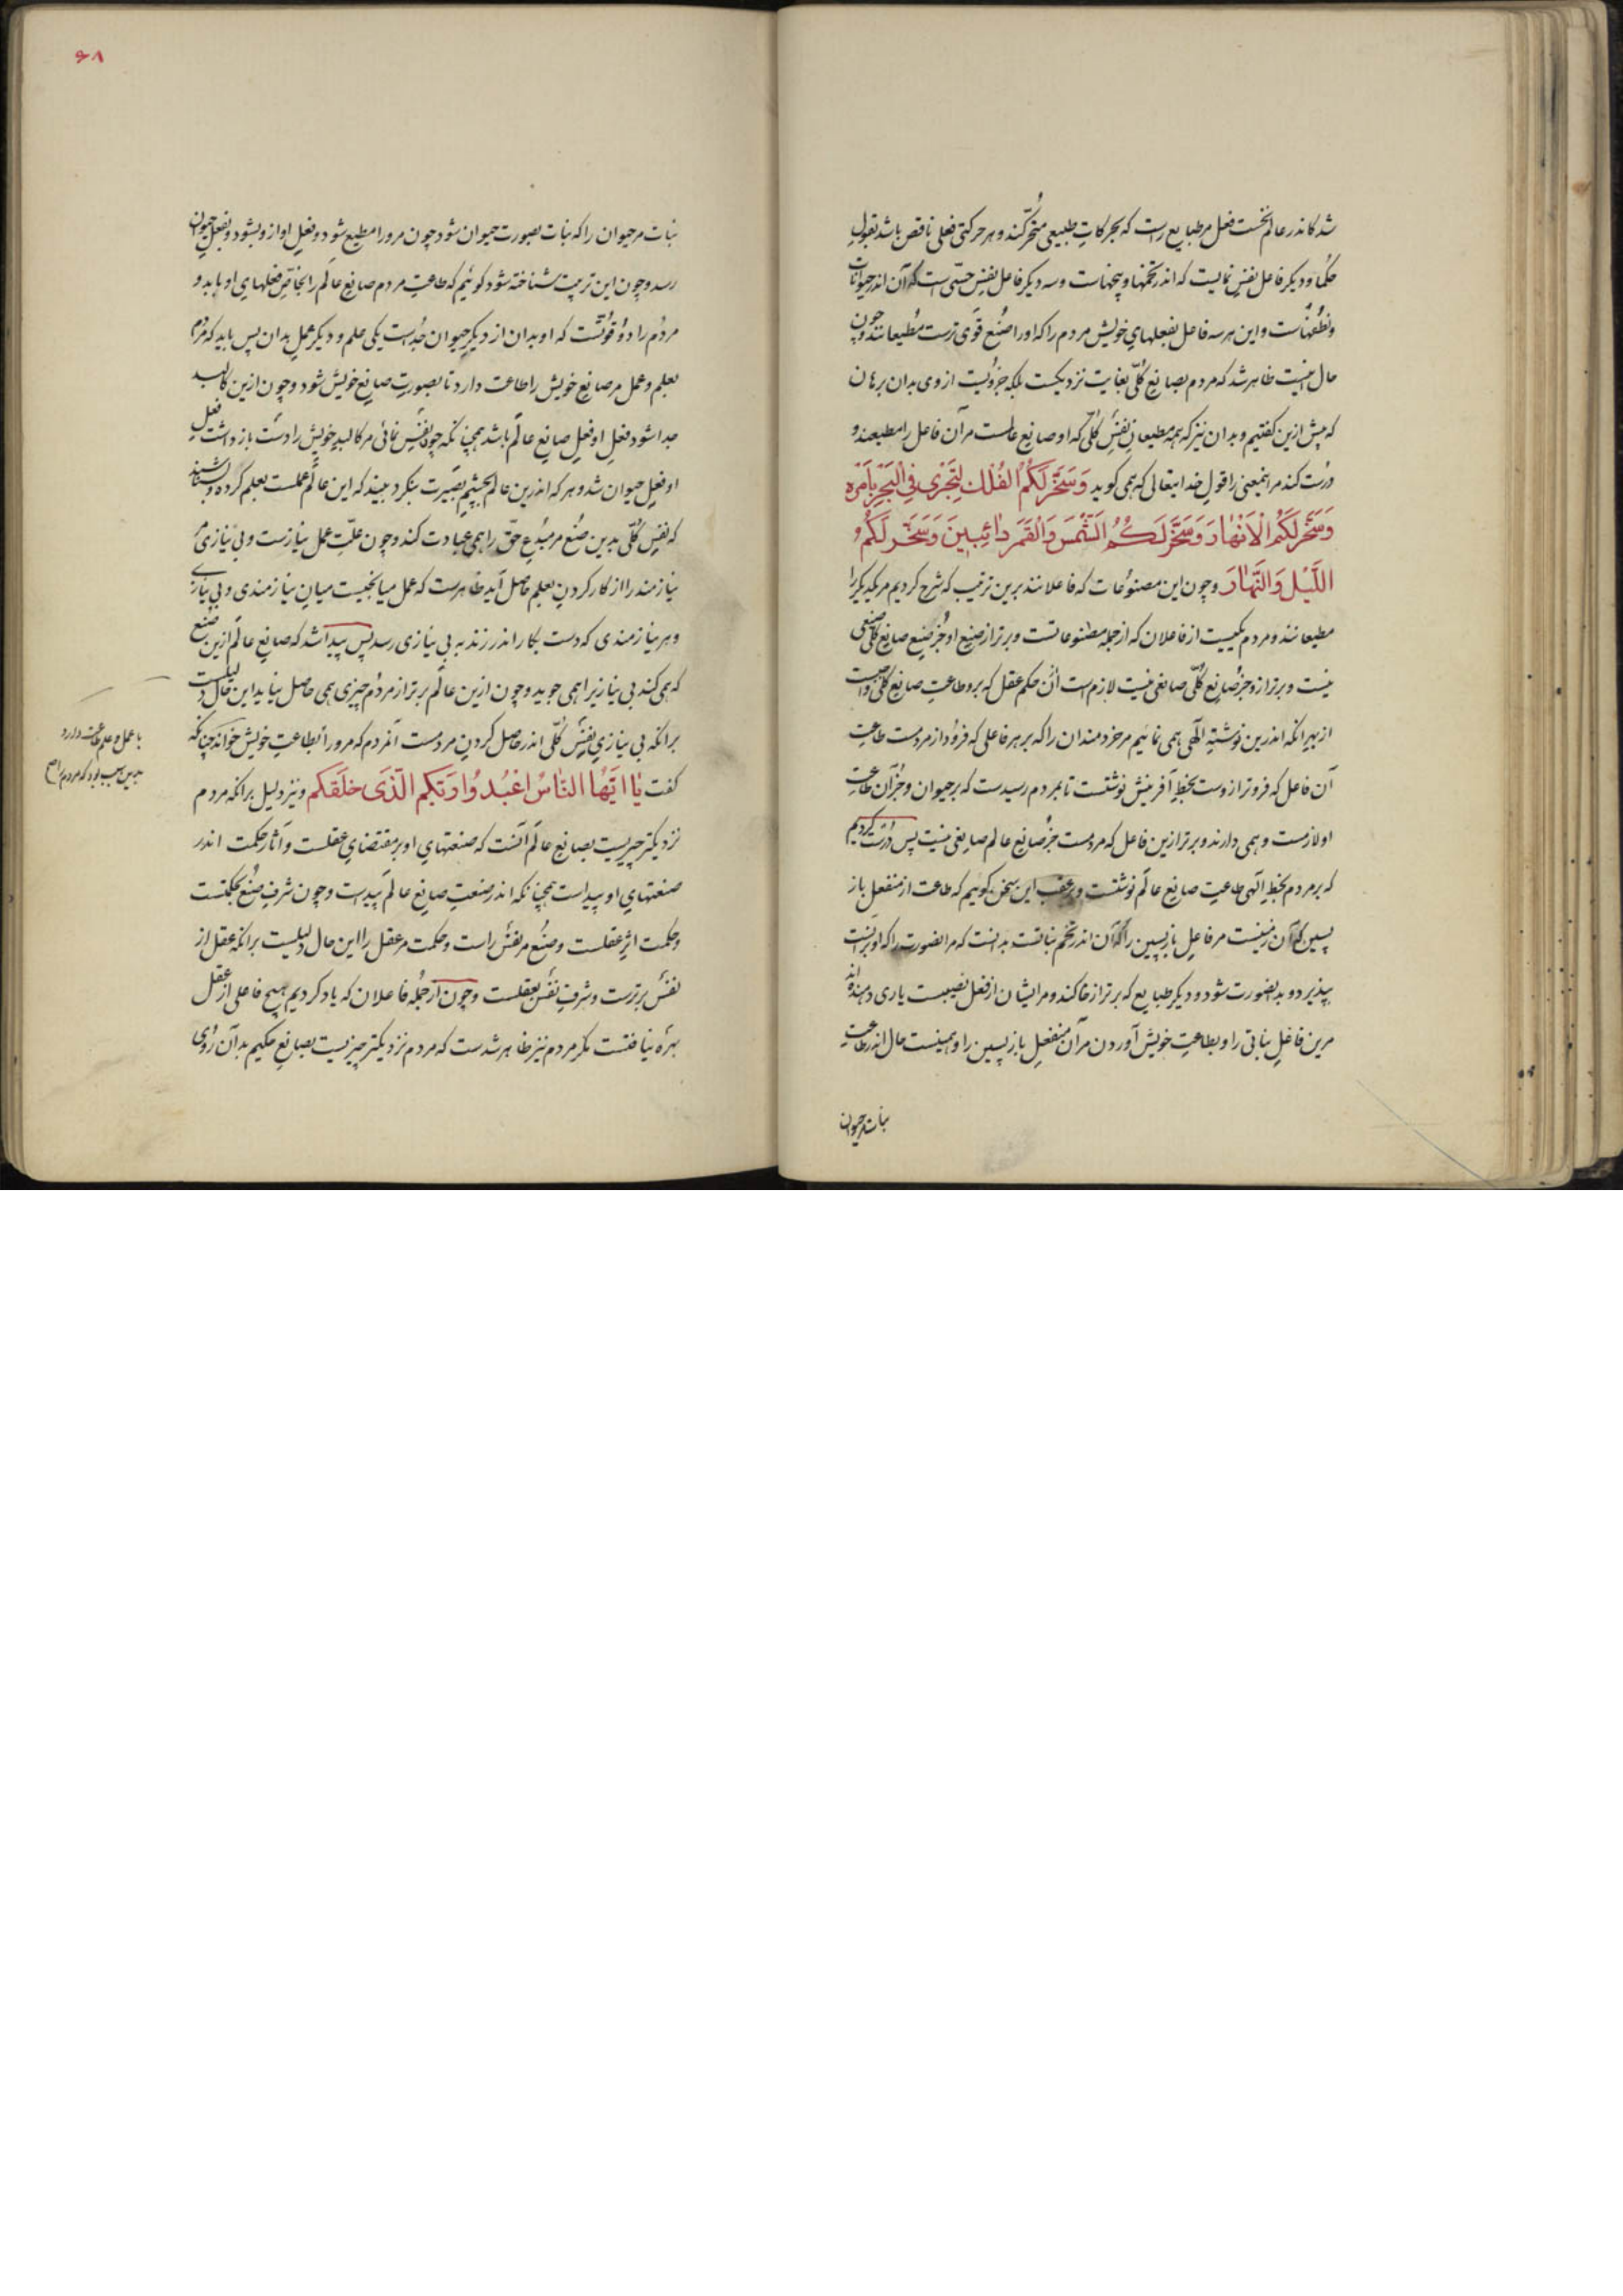 شد کاندر عالم نخست فعل مر طبایع راست که بحرکات طبیعی متحرکند و هر حرکتی فعلی ناقص باشد بقول
حکما و دیگر فاعل نفس نمایست که اندر تخمها و بیخهاست و سه دیگر فاعل نفس حسّی است که آن اندر حیوانات
و نطفهاست و این هر سه فاعل بفعلهای خویش مردم را که او را صُنع قوی ترست مُطیعانند و چون
حال اینست ظاهر شد که مردم بصانع کلّی بغایت نزدیکست بلکه جزویست از وی بدان برهان
که پیش ازین گفتیم و بدان نیز که همه مطیعان نفس کلّی که او صانع عالمست مر آن فاعل را مطیعند و
درست کند مر این معنی را قول خدایتعالی که همی گوید وَسَخَّرَ لَکُمُ الفُلکَ لِتَجْرِیَ فِی الْبَحْرِ بِاَمْرِهِ
وَسَخَّرَ لَکُمُ الْاَنْهَارَ وَسَخَّرَ لَکُمُ الشَّمْسَ وَالْقَمَرَ دَائِبَیْنَ وَسَخَّرَ لَکُمُ
اللَّیْلَ وَالنَّهَارَ و چون این مصنوعات که فاعلانند برین ترتیب که شرح کردیم مر یکدیگر را
مطیعانند و مردم یکیست از فاعلان که از جمله مصنوعاتست و برتر از صنع او جز صنع صانع کلّی صنعی
نیست و برتر ازو جز صانع کلّی صانعی نیست لازم است از حکم عقل که برو طاعت صانع کلّی واجبست
از بهر آنکه اندرین نوشتهٔ الهی همی نمائیم مر خردمندان را که بر هر فاعلی که فرود از مردمست طاعت
آن فاعل که فروتر ازوست بخط آفرینش نوشتست تا بمردم رسیدست که بر حیوان و جز آن طاعت
او لازمست و همی دارند و برتر ازین فاعل که مردمست جز صانع عالم صانعی نیست پس درست کردیم
که بر مردم بخط الهی طاعت صانع عالم نوشتست و بر عقب این سخن گوئیم که طاعت از منفعل باز
پسین که آن زمینست مر فاعل بازپسین را که آن اندر تخم نباتست بدانست که مر آن صورت را که او بر آنست
بپذیرد و بدان صورت شود و دیگر طبایع که برتر از خاکند و مر ایشان را از فعل نصیبست یاری دهنده اند
مرین فاعل نباتی را و بطاعت خویش آوردن مر آن منفعل بازپسین را و همینست حال اندر طاعت
نبات مر حیوان
۶۸
نبات مر حیوان را که نبات بصورت حیوان شود چون مرو را مطیع شود و فعل او ازو بشود و بفعل حیوان
رسد و چون این ترتیب شناخته شود گوئیم که طاعت مردم صانع عالم را بخاصّ فعلهای او باید و
مردم را دو قوّتست که او بدان از دیگر حیوان جداست یکی علم و دیگر عمل بدان پس باید که مردم
بعلم و عمل مر صانع خویش را طاعت دارد تا بصورت صانع خویش شود و چون ازین کالبد
جدا شود فعل او فعل صانع عالم باشد همچنانکه چون نفس نمائی مر کالبد خویش را دست باز داشت فعل
او فعل حیوان شد و هر که اندرین عالم بچشم بصیرت بنگرد ببیند که این عالم عملست بعلم کرده و بشناسد
که نفس کلّی بدین صُنع مر مُبدع حقّ را همی عبادت کند و چون علّت عمل نیازست و بی نیازی مر
نیازمند را از کار کردن بعلم حاصل آید ظاهرست که عمل میانجیست میان نیازمندی و بی نیازی
و هر نیازمندی که دست بکار اندر زند به بی نیازی رسد پس پیدا شد که صانع عالم ازین صنع
که همی کند بی نیازیرا همی جوید و چون ازین عالم برتر از مردم چیزی همی حاصل نیاید این حال دلیلست
بر آنکه بی نیازی نفس کلّی اندر حاصل کردن مردمست آن مردم که مرو را بطاعت خویش خواند چنانکه
گفت یَا اَیُّهَا النَّاسُ اعْبُدُوا رَبَّکُمُ الَّذِی خَلَقَکُم و نیز دلیل بر آنکه مردم
نزدیکتر چیزیست بصانع عالم آنست که صنعتهای او بر مقتضای عقلست و آثار حکمت اندر
صنعتهای او پیداست همچنانکه اندر صنعت صانع عالم پیداست و چون شرف صنع بحکمتست
و حکمت اثر عقلست و صنع مر نفس راست و حکمت مر عقل را این حال دلیلست بر آنکه عقل از
نفس برترست و شرف نفس بعقلست و چون از جمله فاعلان که یاد کردیم هیچ فاعلی از عقل
بهره نیافتست مگر مردم نیز ظاهر شدست که مردم نزدیکتر چیزیست بصانع حکیم بدان روی
با عمل و علم طاعت دارد
بدین سبب بود که مردم را